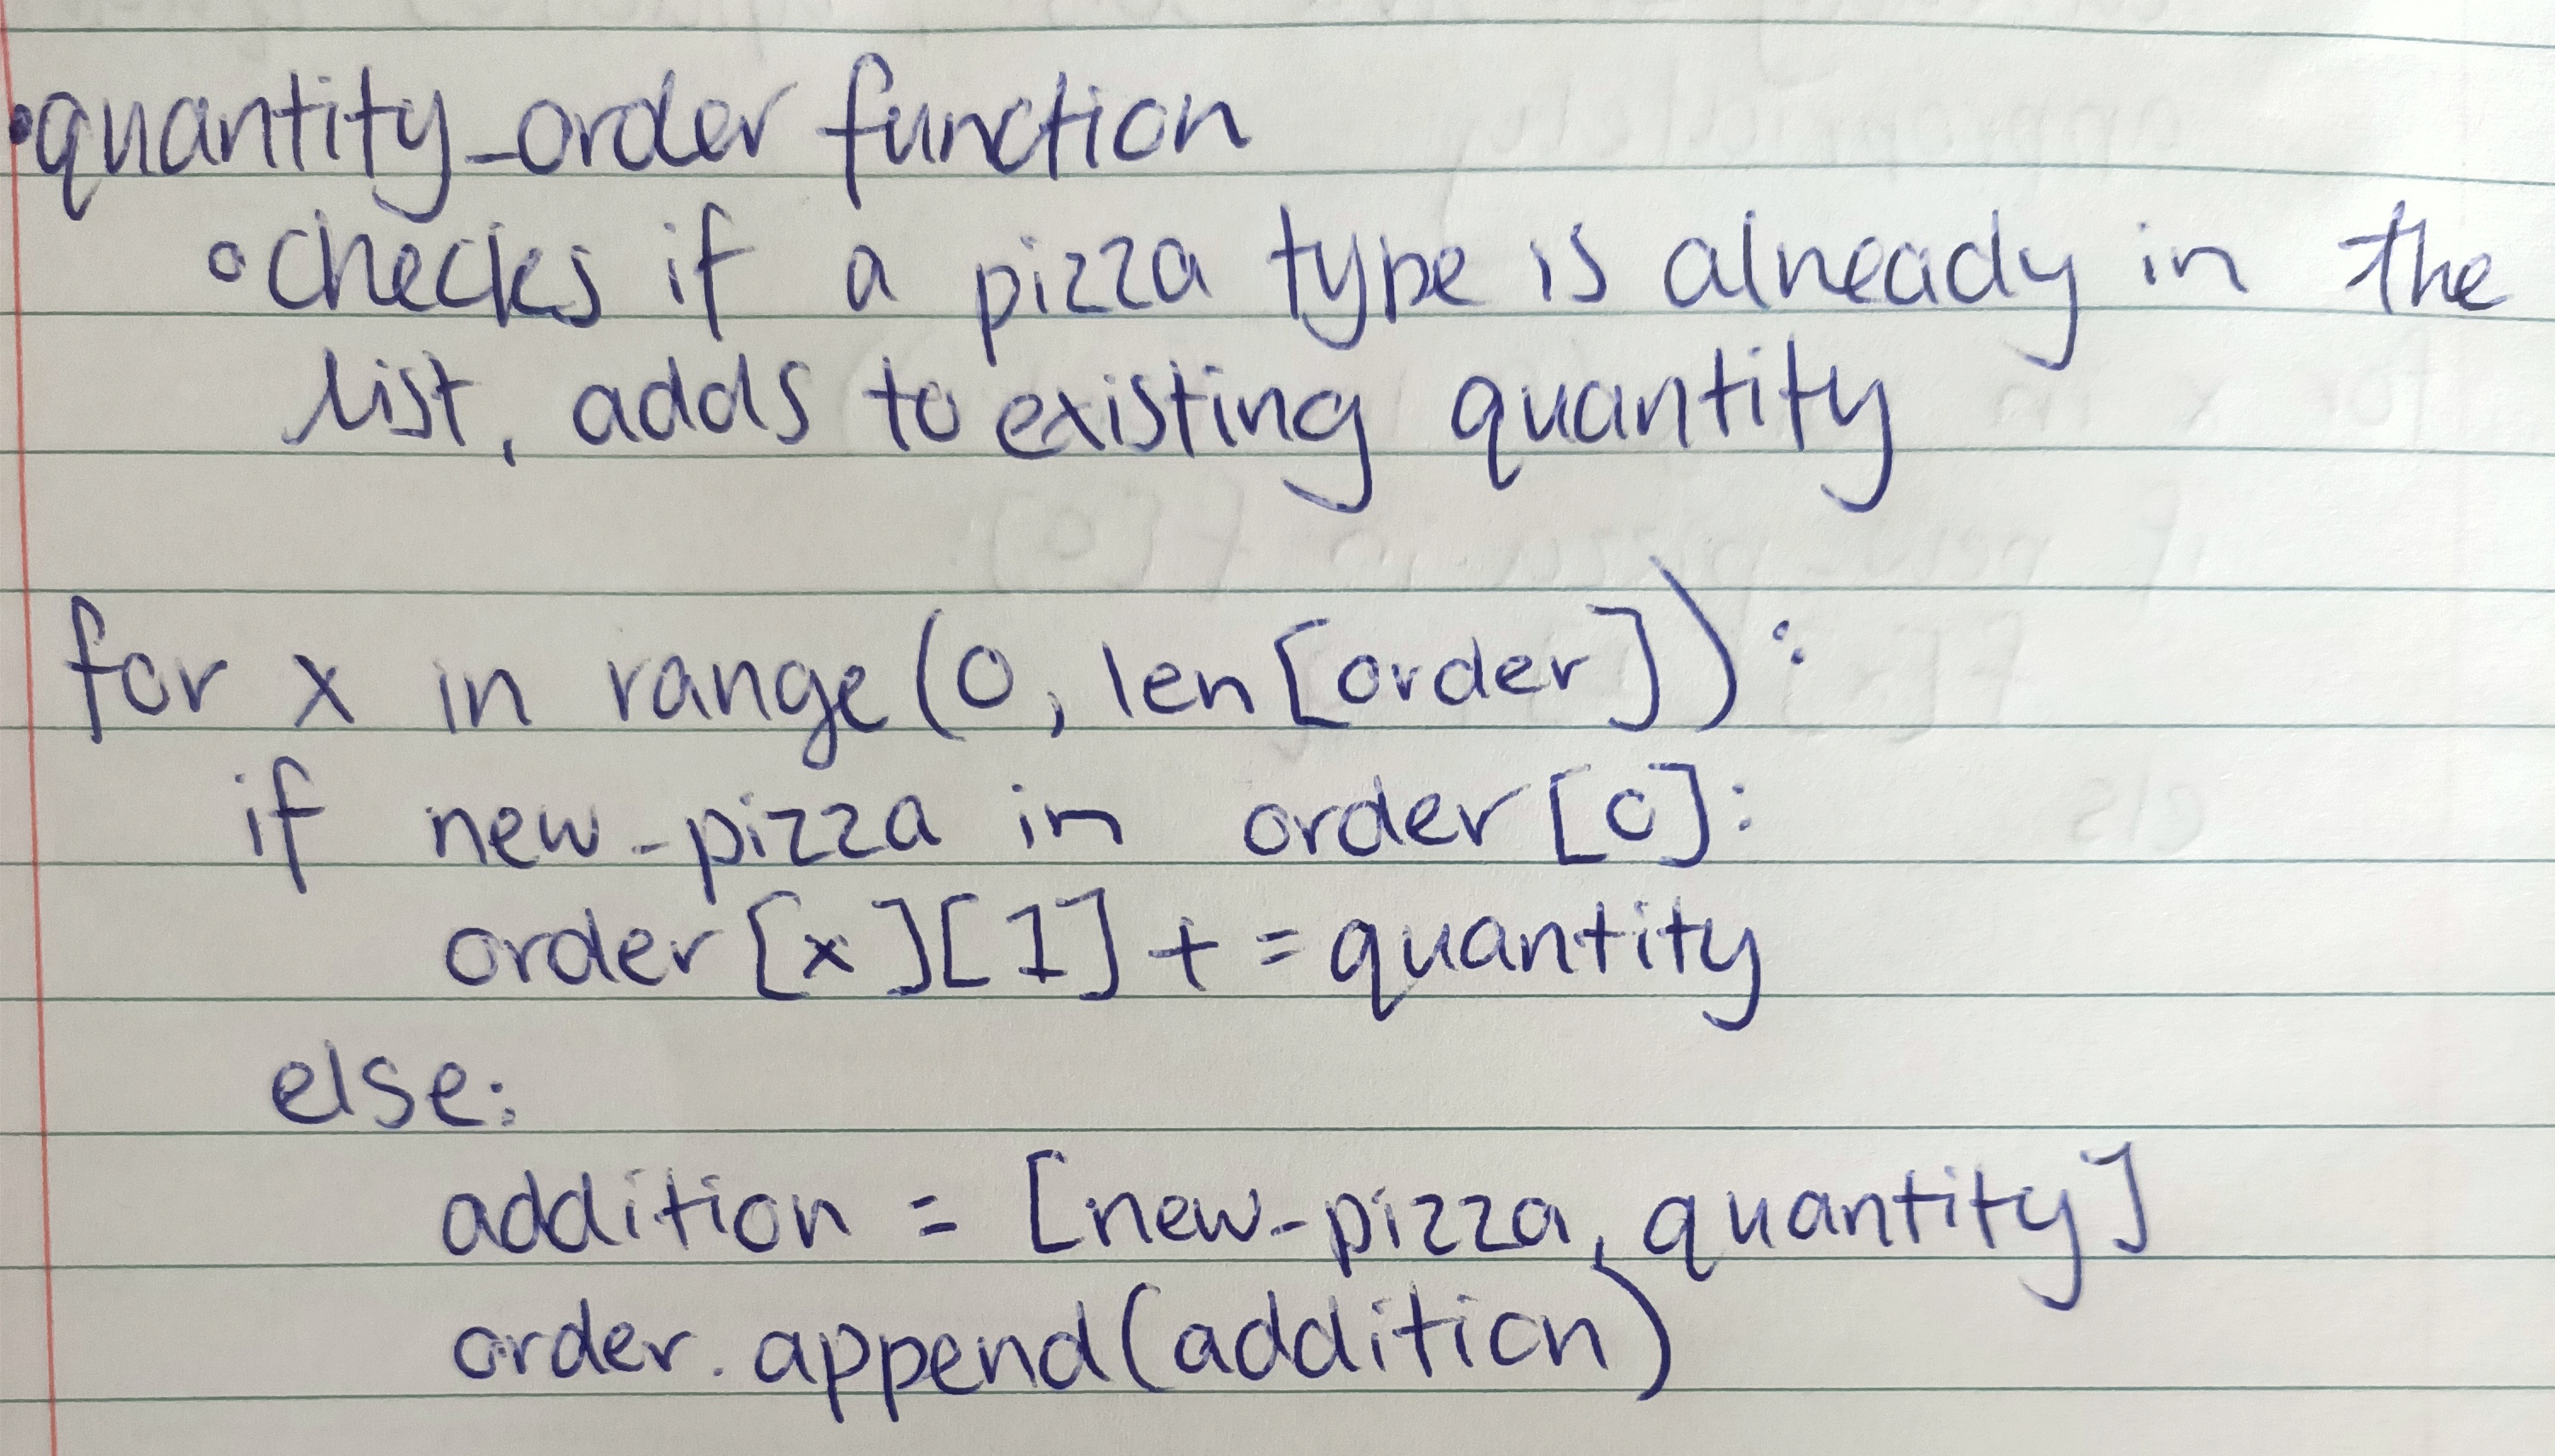 •quantity_order function
◦checks if a pizza type is already in the
list, adds to existing quantity
for x in range(0, len[order]):
if new-pizza in order[0]:
order[x][1] += quantity
else:
addition = [new-pizza, quantity]
order.append(addition)